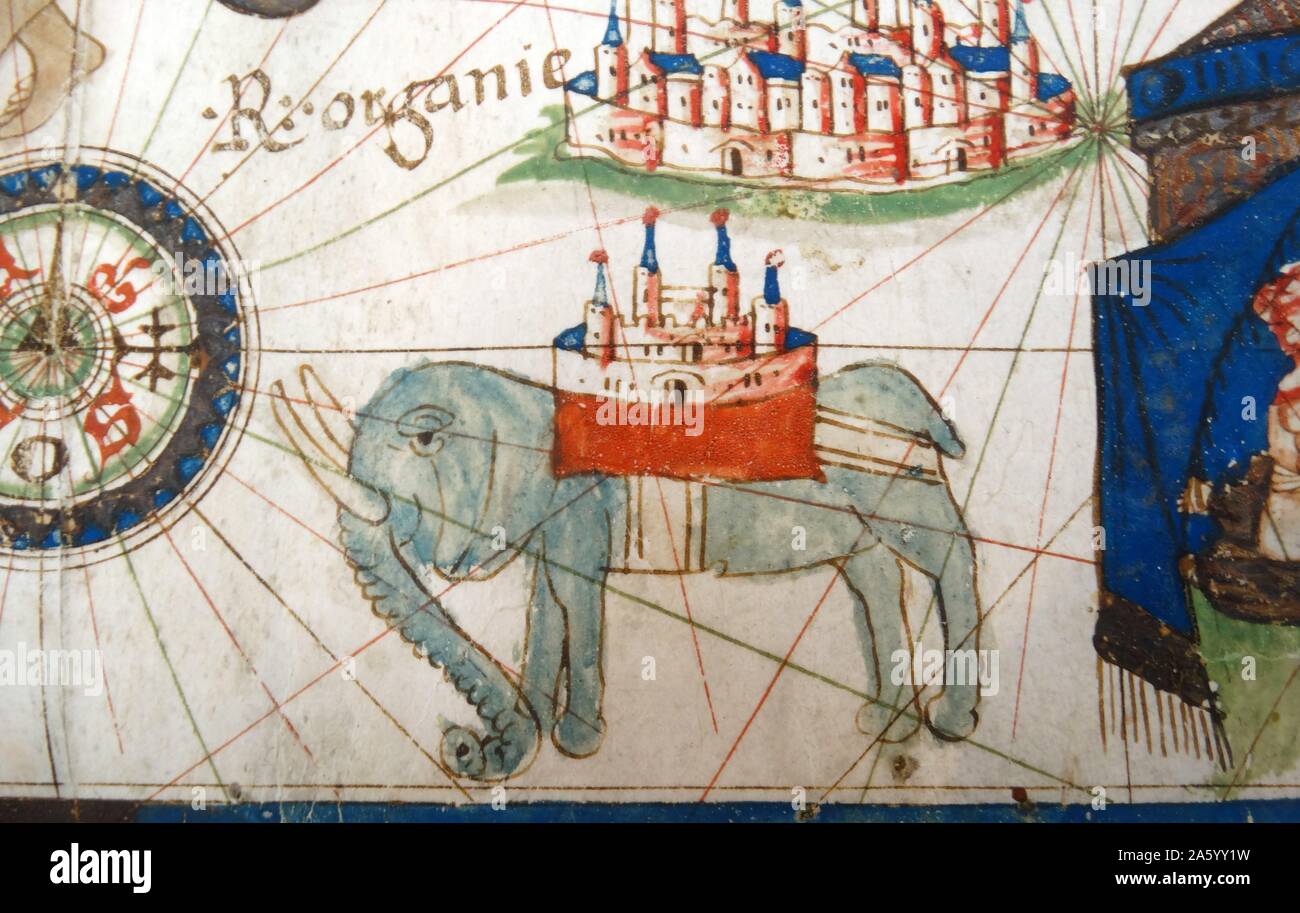 ·R·: organie
alamy
a
a
alamy
a
a
alamy
a
alamy
Image ID: A5YY1W
www.alamy.com